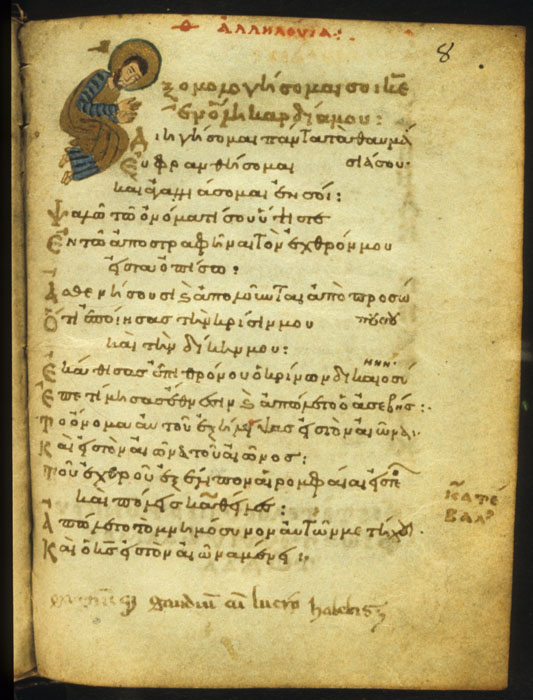 Θ ΑΛΛΗΛΟΥΙΑ:
8
ξομολογήσομαί σοι κε
ἐν ὅλη καρδία μου:
Διηγήσομαι πάντα τὰ θαυμά
σιά σου·
Εὐφρανθήσομαι
καὶ ἀγαλλιάσομαι ἐν σοί:
Ψαλῶ τῶ ὀνόματί σου ὕψιστε
Ἐν τῶ ἀποστραφῆναι τὸν ἐχθρόν μου
εἰς τὰ ὀπίσω:
Ἀσθενήσουσι ϗ ἀπολοῦνται ἀπὸ προσώ
που σου
Ὅτι ἐποίησας τὴν κρίσιν μου
καὶ τὴν δίκην μου:
Ἐκάθισας ἐπὶ θρόνου ὁ κρίνων δικαιοσύ
νην·
Ἐπετίμησας ἔθνεσιν ϗ ἀπώλετο ὁ ἀσεβής:
Τὸ ὄνομα αὐτοῦ ἐξήλειψας εἰς τὸν αἰῶνα·
Καὶ εἰς τὸν αἰῶνα τοῦ αἰῶνος:
Τοῦ ἐχθροῦ ἐξέλιπον αἱ ῥομφαῖαι εἰς
καὶ πόλεις καθεῖλες:
κατέ
βαλο
Ἀπώλετο τὸ μνημόσυνον αὐτῶν μετήχου·
Καὶ ὁ κς εἰς τὸν αἰῶνα μένει:
gaudiū cū lucro habebis